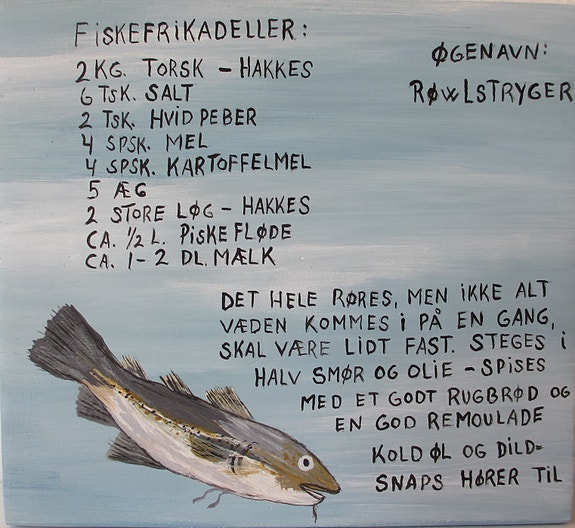 FISKEFRIKADELLER:
2 KG. TORSK – HAKKES
6 TSK. SALT
2 TSK. HVID PEBER
4 SPSK. MEL
4 SPSK. KARTOFFELMEL
5 ÆG
2 STORE LØG – HAKKES
CA. ½ L. PISKEFLØDE
CA. 1–2 DL. MÆLK
ØGENAVN:
RØWLSTRYGER
DET HELE RØRES, MEN IKKE ALT
VÆDEN KOMMES i PÅ EN GANG,
SKAL VÆRE LIDT FAST. STEGES i
HALV SMØR OG OLIE – SPISES
MED ET GODT RUGBRØD OG
EN GOD REMOULADE
KOLD ØL OG DILD=
SNAPS HØRER TIL